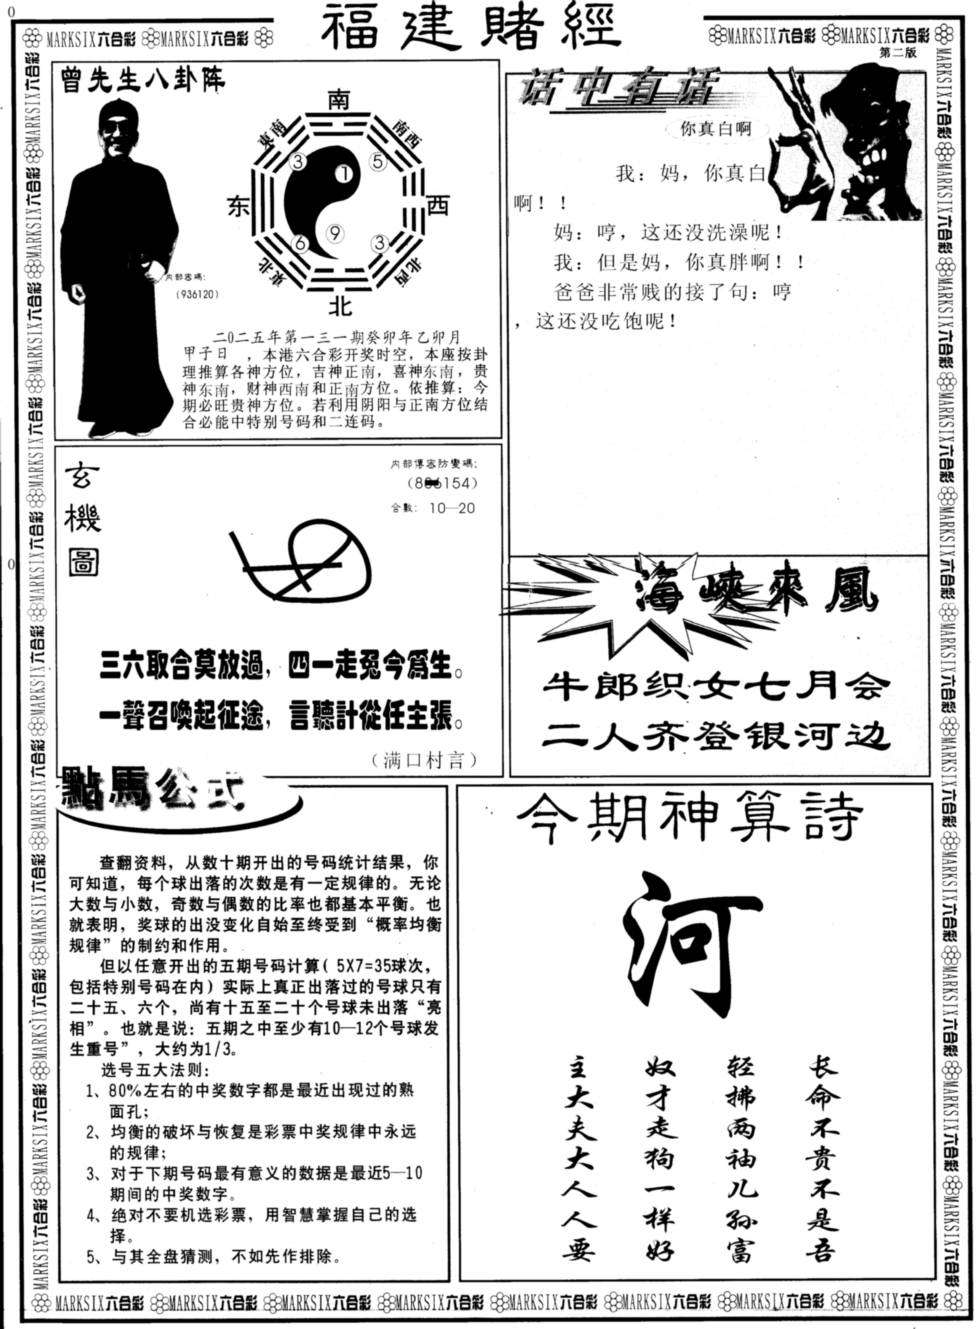 福建賭經
MARKSIX六合彩 MARKSIX六合彩
MARKSIX六合彩 MARKSIX六合彩
第二版
曾先生八卦阵
南
東南
南西
③
①
⑤
东
西
⑥
⑨
③
東北
北西
北
内部密碼:
(936120)
二0二五年第一三一期癸卯年乙卯月
甲子日 ，本港六合彩开奖时空，本座按卦
理推算各神方位，吉神正南，喜神东南，贵
神东南，财神西南和正南方位。依推算：今
期必旺贵神方位。若利用阴阳与正南方位结
合必能中特别号码和二连码。
话中有话
你真白啊
我：妈，你真白
啊！！
妈：哼，这还没洗澡呢！
我：但是妈，你真胖啊！！
爸爸非常贱的接了句：哼
，这还没吃饱呢！
玄機圖
内部傳密防變碼:
154)
合數: 10—20
三六取合莫放過，四一走冤今爲生。
一聲召喚起征途，言聽計從任主張。
（满口村言）
海峽來風
牛郎织女七月会
二人齐登银河边
點馬公式
查翻资料，从数十期开出的号码统计结果，你
可知道，每个球出落的次数是有一定规律的。无论
大数与小数，奇数与偶数的比率也都基本平衡。也
就表明，奖球的出没变化自始至终受到“概率均衡
规律”的制约和作用。
但以任意开出的五期号码计算( 5X7=35球次，
包括特别号码在内）实际上真正出落过的号球只有
二十五、六个，尚有十五至二十个号球未出落“亮
相”。也就是说：五期之中至少有10—12个号球发
生重号”，大约为1/3。
选号五大法则：
1、80%左右的中奖数字都是最近出现过的熟
面孔；
2、均衡的破坏与恢复是彩票中奖规律中永远
的规律；
3、对于下期号码最有意义的数据是最近5—10
期间的中奖数字。
4、绝对不要机选彩票，用智慧掌握自己的选
择。
5、与其全盘猜测，不如先作排除。
今期神算詩
河
长命不贵不是吾
轻拂两袖儿孙富
奴才走狗一样好
主大夫大人人要
MARKSIX六合彩 MARKSIX六合彩 MARKSIX六合彩 MARKSIX六合彩 MARKSIX六合彩 MARKSIX六合彩 MARKSIX六合彩 MARKSIX六合彩